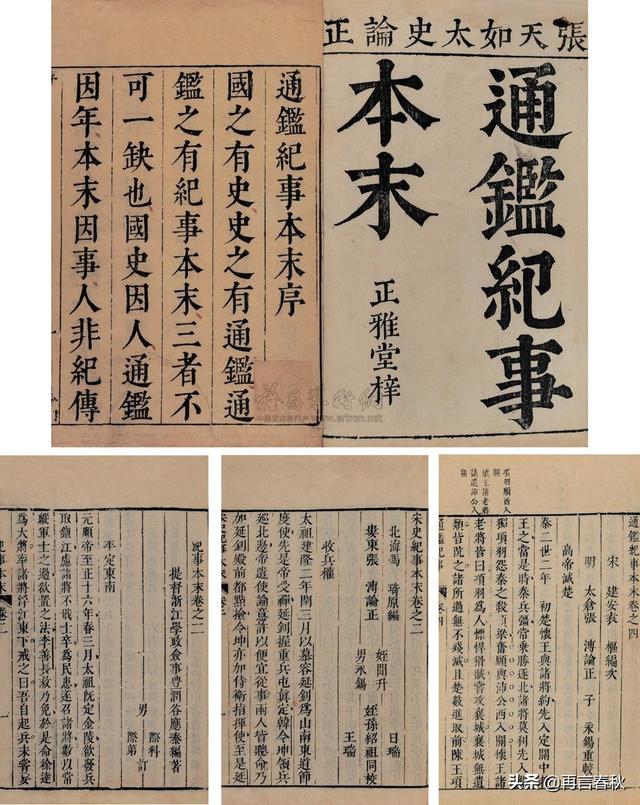 張天如太史論正
通鑑紀事
本末
正雅堂梓
通鑑紀事本末序
國之有史史之有通鑑通
鑑之有紀事本末三者不
可一缺也國史因人通鑑
因年本末因事人非紀傳
www.artron.net
通鑑紀事本末卷之四
宋 建安袁 樞編次
明 太倉張 溥論正 子 永錫重較
高帝滅楚
秦二世二年 初楚懷王與諸將約先入定關中
王之當是時秦兵彊常乘勝逐北諸將莫利先入
獨項羽怨秦之殺項梁奮願與沛公西入關懷王諸
老將皆曰項羽為人慓悍猾賊嘗攻襄城襄城無遺
類皆阬之諸所過無不殘滅且楚數進取前陳王項
項羽願西入關
懷王諸老將
議遣沛公入關
宋史紀事本末卷之二
北海馮 琦原編
婁東張 溥論正
姪聞升 日瑞
男永錫 姪孫紹祖同校
王瑞
收兵權
太祖建隆二年閏三月以慕容延釗為山南東道節
度使先是帝受禪延釗握重兵屯真定韓令坤領兵
巡北邊帝遣使諭意許以便宜從事兩人皆聽命乃
加延釗殿前都點檢令坤亦加侍衛指揮使至是延
紀事本末卷之二
提督浙江學政僉事豐潤谷應泰編著
男 際科 際第 訂
平定東南
元順帝至正十六年春三月太祖旣定金陵欲發兵
取鎮江慮諸將不戢士卒為民患遂召諸將數以常
縱軍士之過欲置之法李善長救乃免於是命徐達
為大將率諸將浮江東下戒之曰吾自起兵未嘗妄
头条 @再言春秋